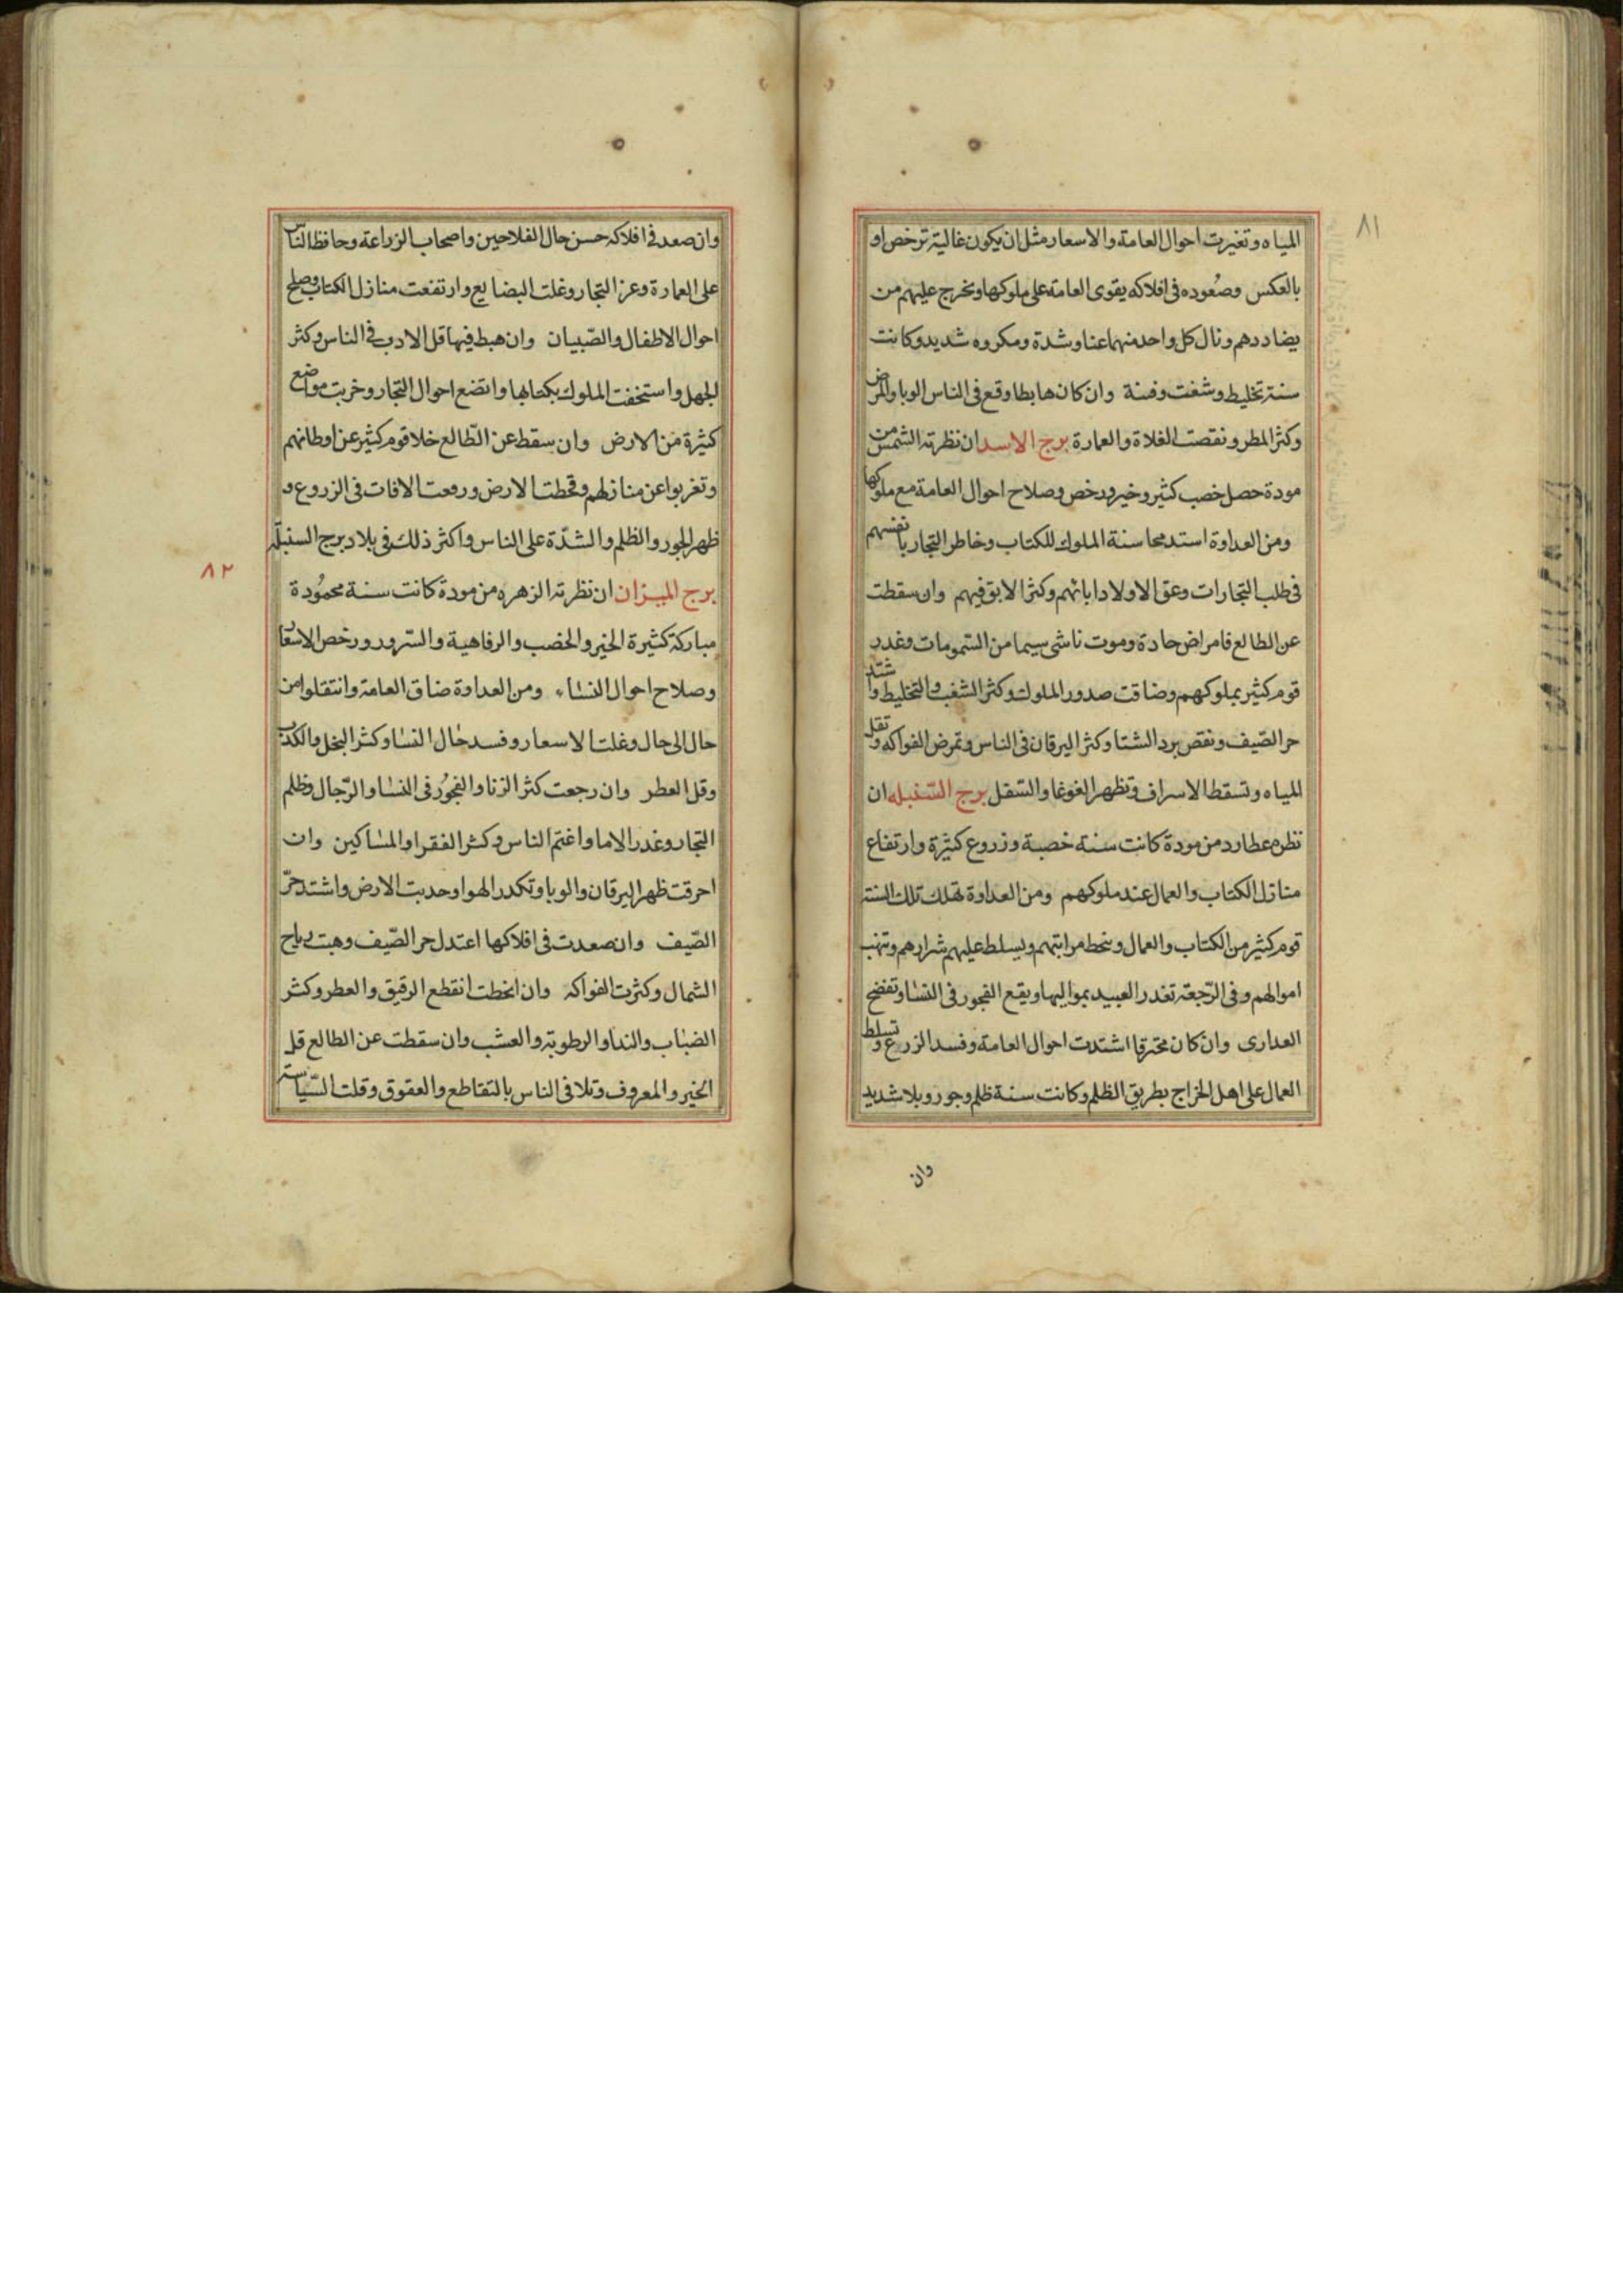 ٨١
المياه وتغيرت احوال العامة والاسعار مثل ان يكون غالية ترخص او
بالعكس وصعوده فى افلاكه يقوى العامة على ملوكها ويخرج عليهم من
يضاددهم ونال كل واحد منهما عنا وشدة ومكروه شديد وكانت
سنة تخليط وشغب وفتنة وان كان هابطا وقع فى الناس الوبا والمرض
وكثر المطر ونقصت الغلاة والعمارة برج الاسد ان نظرته الشمس من
مودة حصل خصب كثير وخير ورخص وصلاح احوال العامة مع ملوكها
ومن العداوة استد محاسنة الملوك للكتاب وخاطر التجار بانفسهم
فى طلب التجارات وعق الاولاد ابائهم وكثر الابق فيهم وان سقطت
عن الطالع فامراض حادة وموت ناشى سيما من السمومات وغدر
قوم كثير بملوكهم وضاقت صدور الملوك وكثر الشغب والتخليط واشتد
حر الصيف ونقص برد الشتا وكثر اليرقان فى الناس وتمرض الفواكه وتقل
المياه وتسقط الاسراف وتظهر الغوغا والسفل برج السنبله ان
نظره عطارد من مودة كانت سنة خصبة وزروع كثيرة وارتفاع
منازل الكتاب والعمال عند ملوكهم ومن العداوة تهلك تلك السنة
قوم كثير من الكتاب والعمال وينحط مراتبهم ويسلط عليهم شرارهم وتنهب
اموالهم وفى الرجعة تغدر العبيد بمواليها ويقع الفجور فى النسا وتفضح
العدارى وان كان محترقا اشتدت احوال العامة وفسد الزرع وتسلط
العمال على اهل الخراج بطريق الظلم وكانت سنة ظلم وجور وبلا شديد
وان
وان صعد فى افلاكه حسن حال الفلاحين واصحاب الزراعة وحافظ الناس
على العمارة وعز التجار وغلت البضايع وارتفعت منازل الكتاب وصلح
احوال الاطفال والصبيان وان هبط فيها قل الادب فى الناس وكثر
الجهل واستخفت الملوك بكتابها واتضع احوال التجار وخربت مواضع
كثيرة من الارض وان سقط عن الطالع خلا قوم كثير عن اوطانهم
وتغربوا عن منازلهم وقحطت الارض ورفعت الافات فى الزروع و
ظهر الجور والظلم والشدة على الناس واكثر ذلك فى بلاد برج السنبلة
٨٢
برج الميزان ان نظرته الزهره من مودة كانت سنة محمودة
مباركة كثيرة الخير والخصب والرفاهية والسرور ورخص الاسعار
وصلاح احوال النساء ومن العداوة ضاق العامة وانتقلوا من
حال الى حال وغلت الاسعار وفسد حال النسا وكثر البخل والكذب
وقل العطر وان رجعت كثر الزنا والفجور فى النسا والرجال وظلم
التجار وغدر الاما واغتم الناس وكثر الفقرا والمساكين وان
احرقت ظهر اليرقان والوبا وتكدر الهوا وحدبت الارض واشتد حر
الصيف وان صعدت فى افلاكها اعتدل حر الصيف وهبت رياح
الشمال وكثرت الفواكه وان انحطت انقطع الرقيق والعطر وكثر
الضباب والندا والرطوبة والعشب وان سقطت عن الطالع قل
الخير والمعروف وتلافى الناس بالتقاطع والعقوق وقلت السياسة